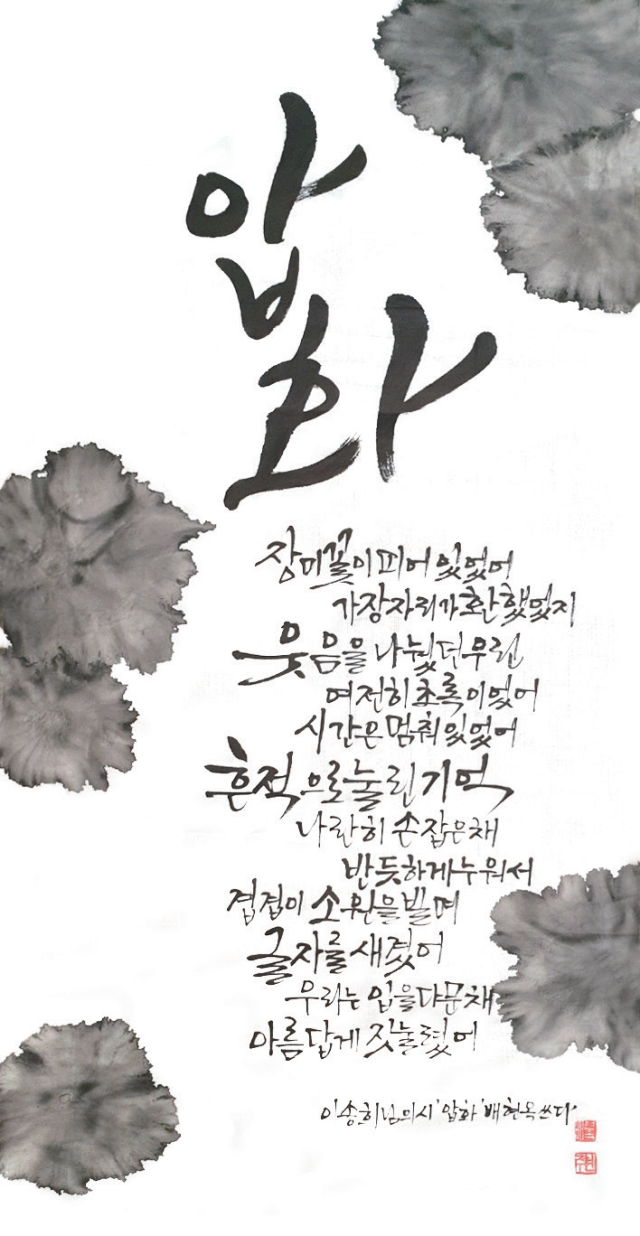 압화
장미꽃이 피어 있었어
가장자리가 환했었지
웃음을 나눴던 우린
여전히 초록이었어
시간은 멈춰 있었어
흔적으로 눌린 기억
나란히 손 잡은 채
반듯하게 누워서
겹겹이 소원을 빌며
글자를 새겼어
우리는 입을 다문 채
아름답게 짓눌렸어
이송희님의 시 '압화' 배현옥 쓰다